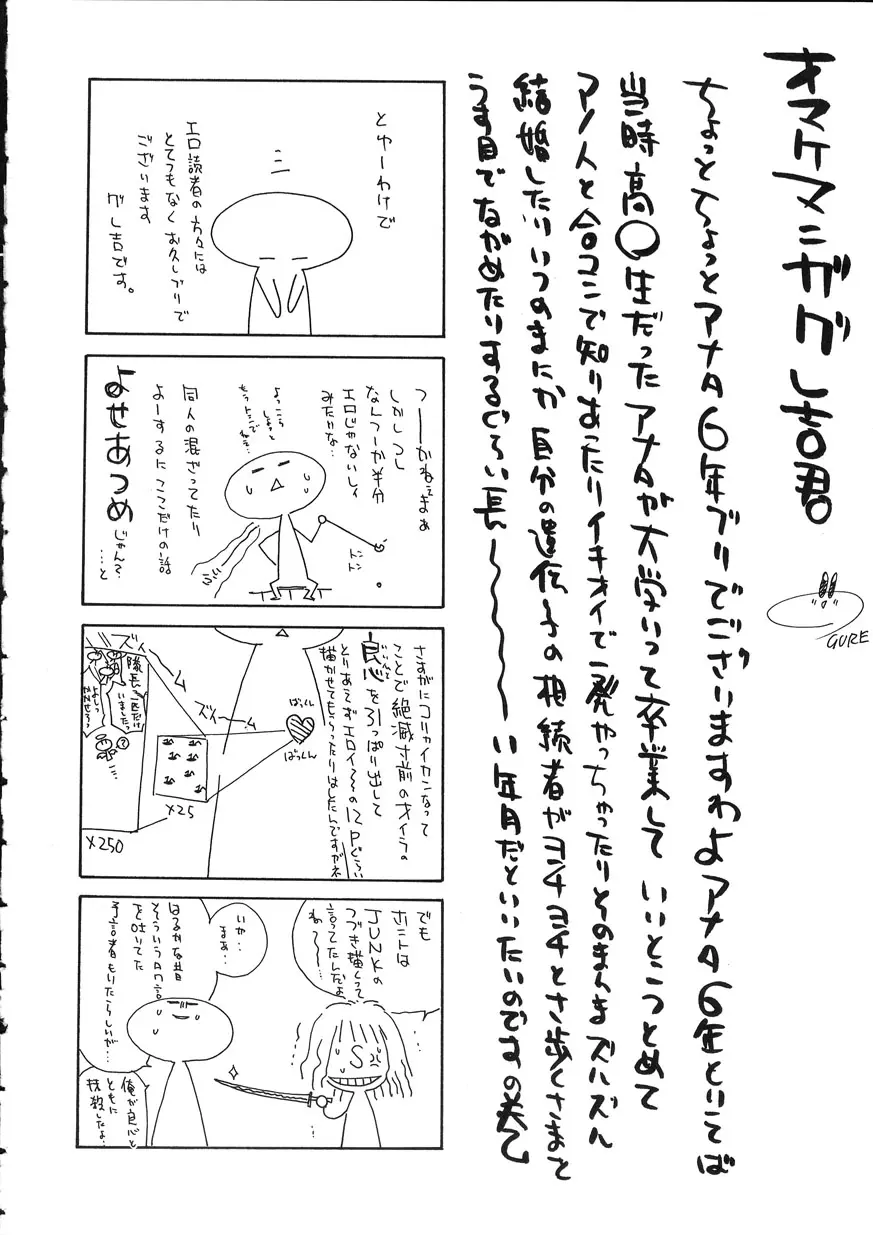 オマケマンガグレ吉君
ちょっとちょっとアナタ6年ブリでございますわよアナタ6年といてば
当時高〇生だったアナタが大学いって卒業していいとこつとめて
アノ人と合コンで知りあったりイキオイで一発やっちゃったりとそのまんまズルズル
結婚したりいつのまにか自分の遺伝子の相続者がヨチヨチとさ歩くさまを
うす目でながめたりするぐらい長〜〜〜〜い年月だといいたいのですの巻
GURE
とゆーわけで
エロ読者の方々には
とてつもなくお久しブリで
ございます
グレ吉です。
つーかねぇまぁ
しかしつし
なんつーか半分
エロじゃないしィ
みたいな…
よっこら
しょっと
もっトシで
ねぇ…
同人の混ざってたり
よーするにここだけの話
よせあつめ
じゃん?
…と
トントン
さすがにコリャイカンなって
ことで絶滅寸前のオイラの
良心を引っぱり出して
とりあえずエロイ〜の12Pぐらい
描かせてもらったりはしたんですがネ
ばっくん
ばっくん
ズィーーム
ズィーム
×25
×250
隊長一匹だけ
いましたっ
よしっ
かかせろっ
?
でも
ホントは
JUNKの
つづき描くって
言ってたんだよ
ね〜〜…
S
いや…
まぁ…
はるかな昔
そういうタワ言
を吐いてた
予言者もいたらしいが…
俺が良心と
ともに
抹殺したよ…